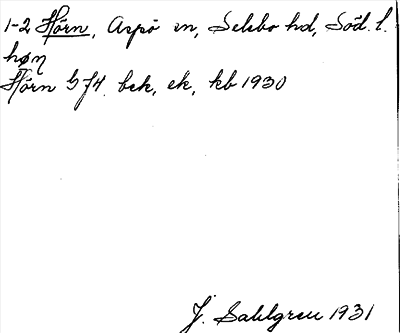 1-2 Hörn, Aspö sn, Selebo hd, Söd. l.
høṇ
Hörn G 74 bek, ek, kb 1930
J. Sahlgren 1931